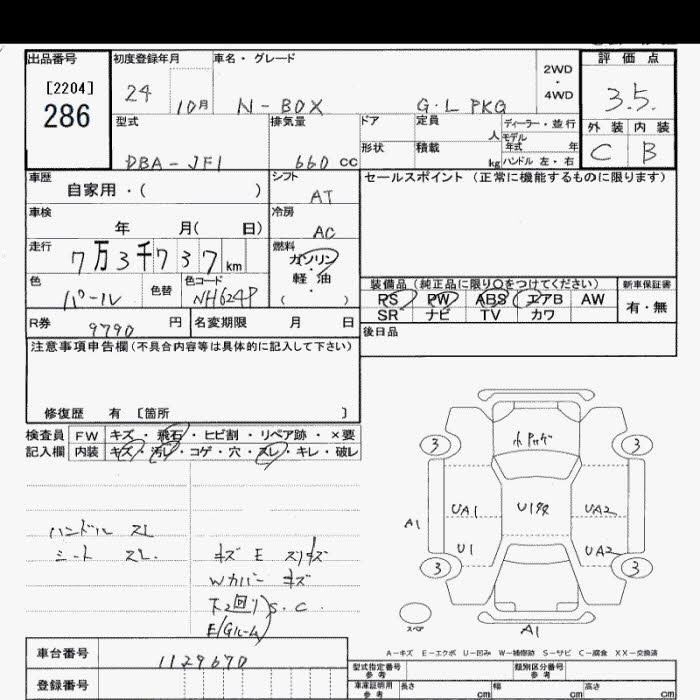 出品番号
[2204]
286
初度登録年月
24
10月
車名・グレード
N-BOX
G・L PKG
2WD
・
4WD
評価点
3.5.
外装 内装
C B
型式
DBA-JF1
排気量
660 cc
ドア
形状
定員
人
積載
kg
ディーラー・並行
モデル
年式 年
ハンドル 左・右
車歴
自家用・( )
シフト
AT
セールスポイント (正常に機能するものに限ります)
車検
年 月( 日)
冷房
AC
走行
7万3千737 km
燃料
ガソリン
・
軽油
( )
色
パール
色替
色コード
NH624P
装備品 (純正品に限り〇をつけてください)
新車保証書
PS PW ABS エアB AW
SR ナビ TV カワ
有・無
R券
9790 円
名変期限 月 日
後日品
注意事項申告欄(不具合内容等は具体的に記入して下さい)
修復歴 有 [箇所 ]
検査員
記入欄
FW キズ・飛石・ヒビ割・リペア跡・×要
内装 キズ・汚レ・コゲ・穴・スレ・キレ・破レ
ハンドル スレ
シート スレ.
キズ E スリキズ
Wカバー キズ
下2回リ S.C
E/Gルーム
3
3
UA1
UA2
A1
U1
UA2
3
3
スペア
A1
A-キズ E-エクボ U-凹み W-補修跡 S-サビ C-腐食 XX-交換済
車台番号
1129670
登録番号
型式指定番号
参考
類別区分番号
参考
車庫証明用
参考
長さ cm
幅 cm
高さ cm